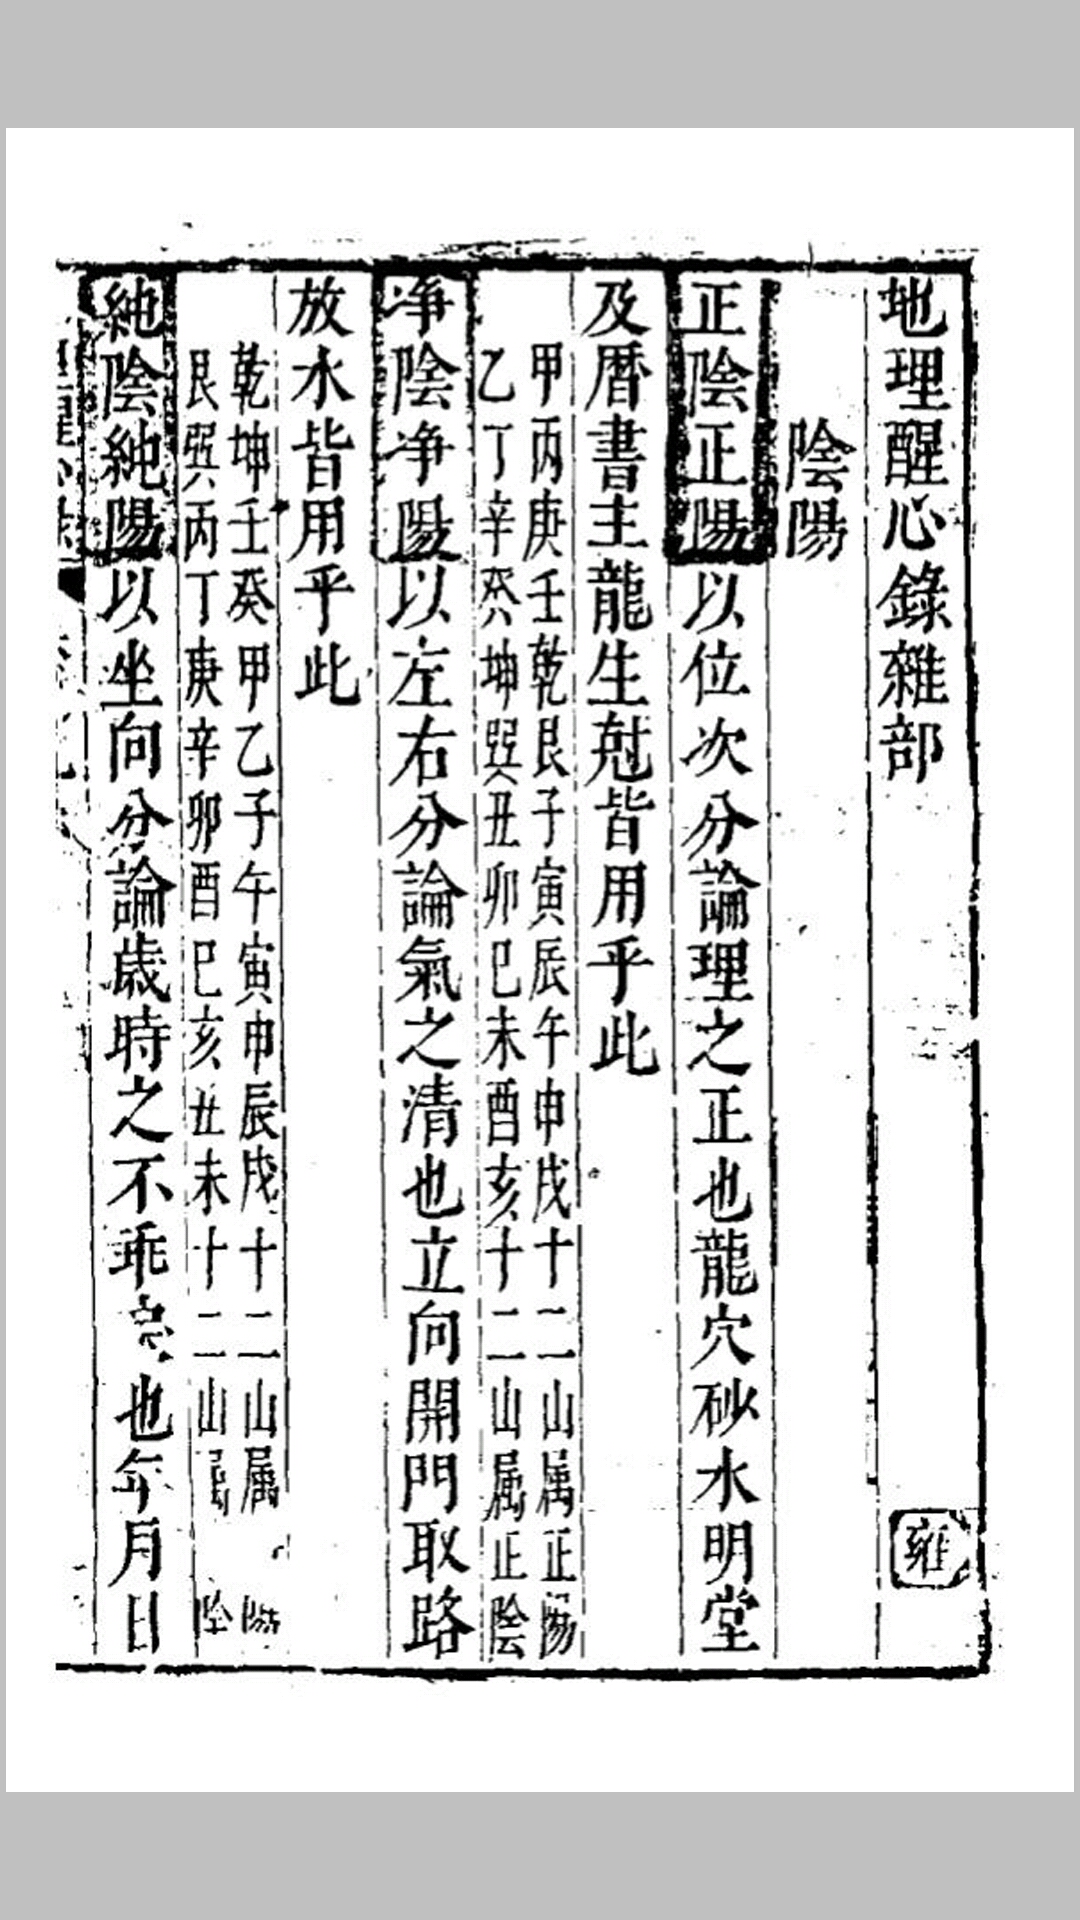 地理醒心錄雜部
雍
陰陽
正陰正陽以位次分論理之正也龍穴砂水明堂
及曆書主龍生尅皆用乎此
甲丙庚壬乾艮子寅辰午申戌十二山属正陽
乙丁辛癸坤巽丑卯巳未酉亥十二山属正陰
净陰净陽以左右分論氣之清也立向開門取路
放水皆用乎此
乾坤壬癸甲乙子午寅申辰戌十二山属 陽
艮巽丙丁庚辛卯酉巳亥丑未十二山属 陰
純陰純陽以坐向分論歲時之不乖 也年月日